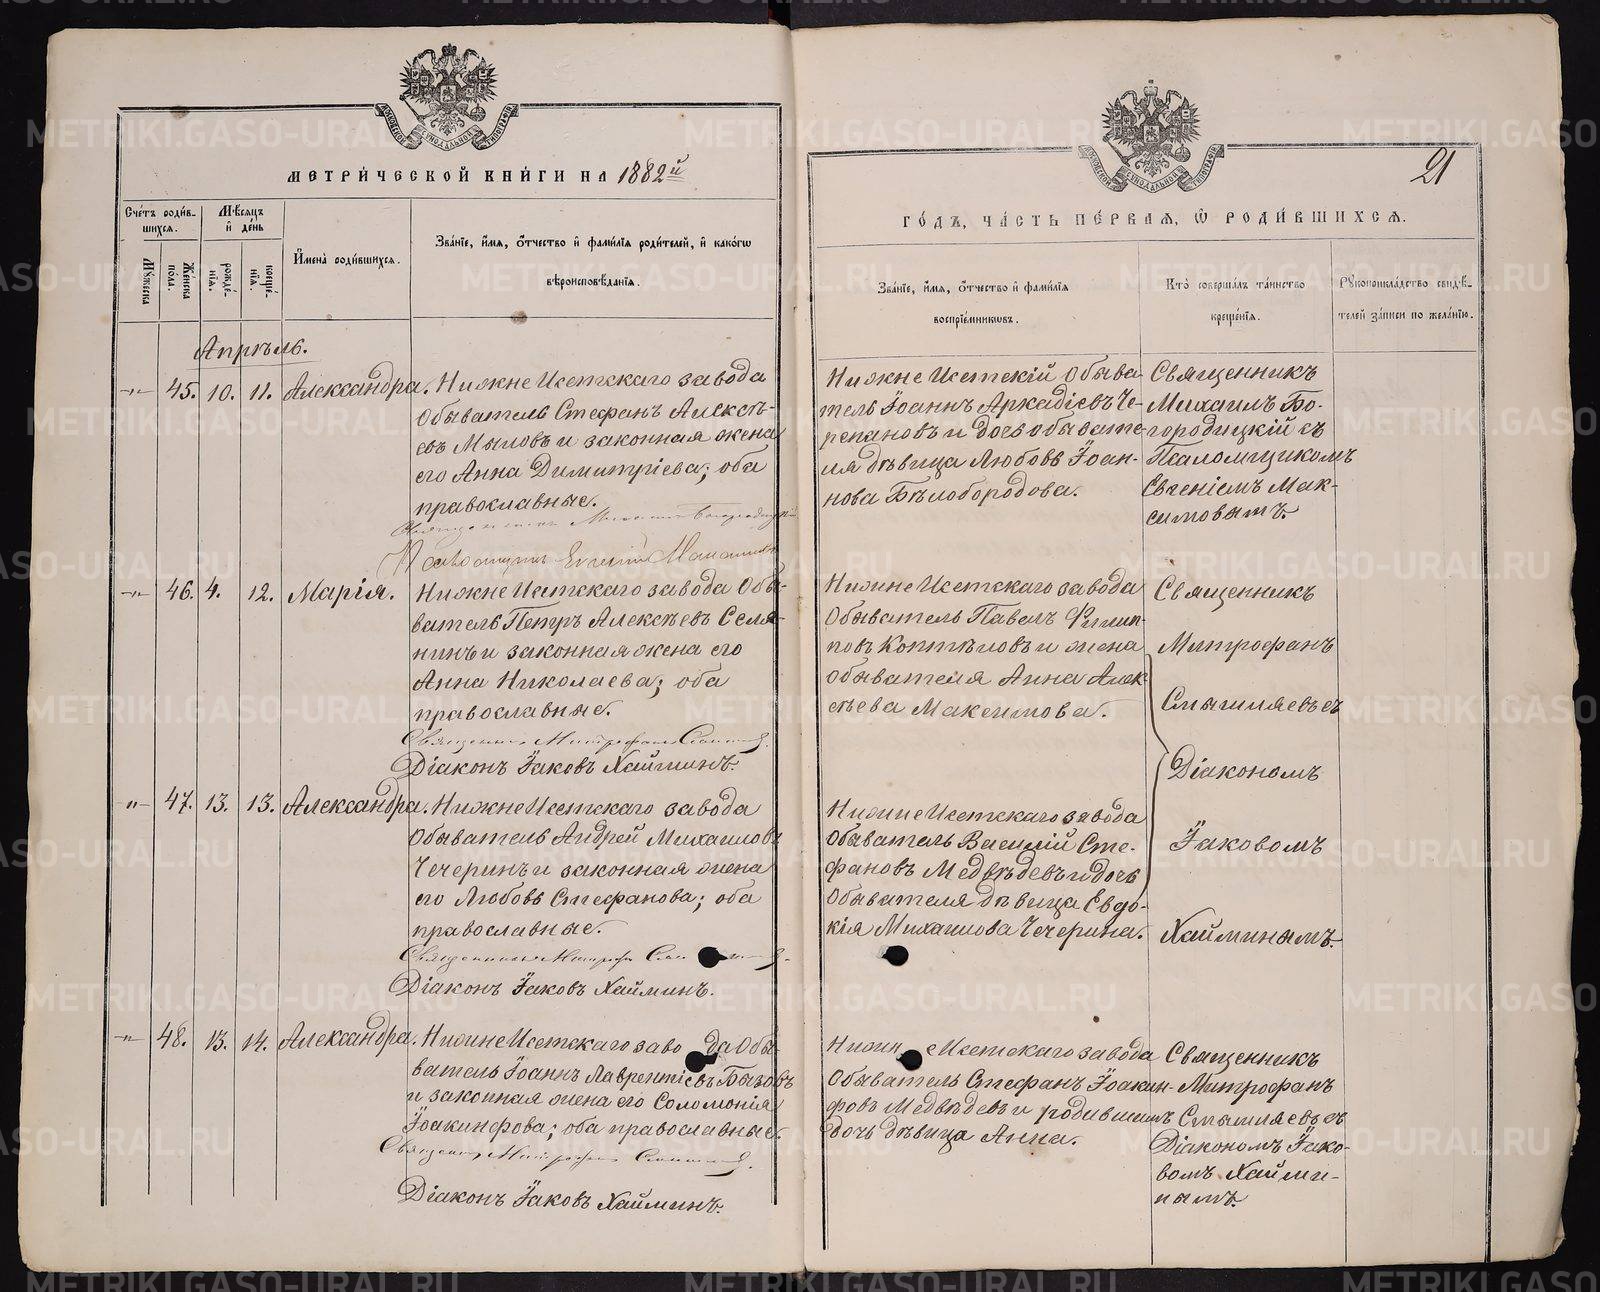 МЕТРИ́ЧЕСКОЙ КНИ́ГИ НА 1882й
Сче́тъ роди́в-
шихся.
Мꙋ́жеска
Же́нска
по́ла.
Мѣ́сяцъ
и де́нь
рожде́-
нїя.
креще́-
нїя.
И҆мена̀ роди́вшихся.
Зва́нїе, и҆́мя, ѻ҆́тчество и҆ фами́лїя роди́телей, и҆ како́гѡ
вѣроисповѣ́данїя.
Апрѣль.
-"- 45. 10. 11. Александра.
Нижне Исетскаго завода
Обыватель Стефанъ Алексѣ-
евъ Мыловъ и законная жена
его Анна Димитріева; оба
православные.
Священникъ Михаилъ Богородицкій
Псаломщикъ Евгеній Максимовъ
-"- 46. 4. 12. Марія.
Нижне Исетскаго завода Обы-
ватель Петръ Алексѣевъ Селя-
нинъ и законная жена его
Анна Николаева; оба
православные.
Священникъ Митрофанъ
Діаконъ Іаковъ Хайминъ.
-"- 47. 13. 13. Александра.
Нижне Исетскаго завода
Обыватель Андрей Михаиловъ
Чечеринъ и законная жена
его Любовь Стефанова; оба
православные.
Священникъ Митроф
Діаконъ Іаковъ Хайминъ.
-"- 48. 13. 14. Александра.
Нижне Исетскаго заво да Обы-
ватель Іоаннъ Лаврентіевъ Бызовъ
и законная жена его Соломонія
Іоакинфова; оба православные.
Священ Митрофанъ
Діаконъ Іаковъ Хайминъ.
21
ГО́ДЪ, ЧА́СТЬ ПЕ́РВАЯ, Ѡ РОДИ́ВШИХСЯ.
Зва́нїе, и҆́мя, ѻ҆́тчество и҆ фами́лїя
воспрїе́мникѡвъ.
Кто̀ соверша́лъ та́инство
креще́нїя.
Рꙋкоприкла́дство свидѣ́-
телей за́писи по жела́нїю.
Нижне Исетскій Обыва-
тель Іоаннъ Аркадіевъ Че-
репановъ и дочь обывате-
ля дѣвица Любовь Іоан-
нова Бѣлобородова.
Священникъ
Михаилъ Бо-
городицкій съ
Псаломщикомъ
Евгеніемъ Мак-
симовымъ.
Нижне Исетскаго завода
Обыватель Павелъ Филип-
повъ Коптѣловъ и жена
обывателя Анна Алек-
сѣева Максимова.
Священникъ
Митрофанъ
Смышляевъ съ
Діакономъ
Іаковомъ
Хайминымъ.
Нижне Исетскаго завода
Обыватель Василій Сте-
фановъ Медвѣдевъ и дочь
Обывателя дѣвица Евдо-
кія Михаилова Чечерина.
Нижн е Исетскаго завода
Обыватель Стефанъ Іоакин-
фовъ Медвѣдевъ и родившимъ
дочь дѣвица Анна.
Священникъ
Митрофанъ
Смышляевъ съ
Діакономъ Іако-
вомъ Хайми-
нымъ.